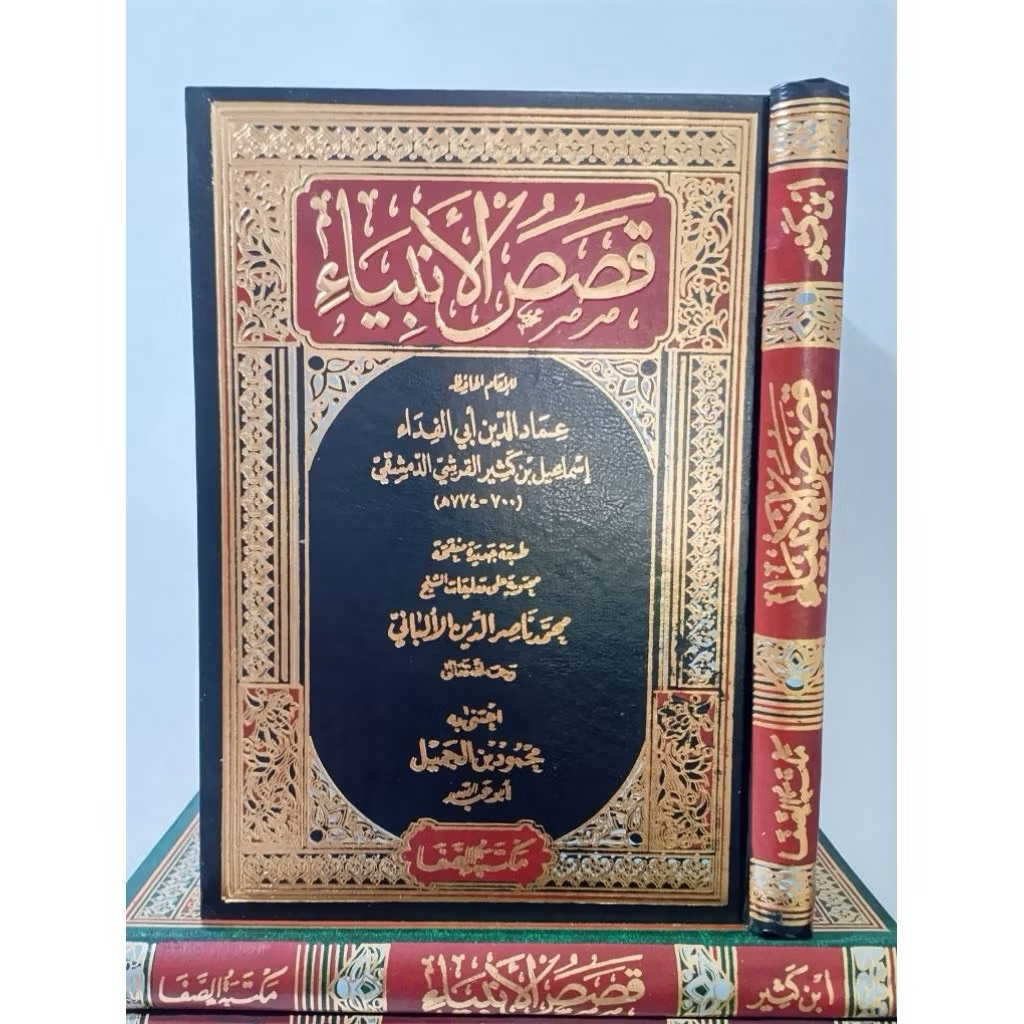 قصص الأنبياء
للإمام الحافظ
عماد الدين أبي الفداء
إسماعيل بن كثير القرشي الدمشقي
(٧٠٠-٧٧٤هـ)
طبعة جديدة منقحة
محتوية على تعليقات الشيخ
محمد ناصر الدين الألباني
رحمه الله تعالى
اعتنى به
محمود بن الجميل
أبو عبد الله
مكتبة الصفا
ابن كثير
قصص الأنبياء
مكتبة الصفا
ابن كثير
قصص الأنبياء
مكتبة الصفا